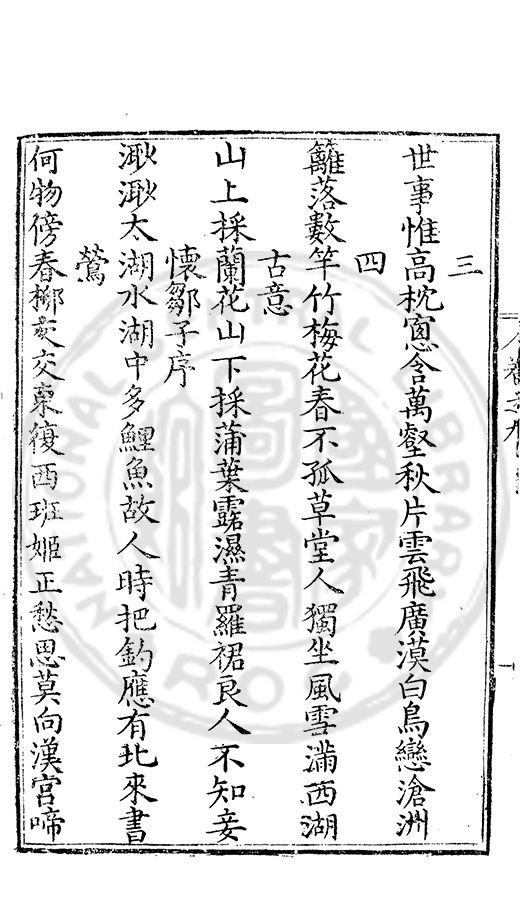 三
世事惟高枕窓含萬壑秋片雲飛廣漠白鳥戀滄洲
四
籬落數竿竹梅花春不孤草堂人獨坐風雪滿西湖
古意
山上採蘭花山下採蒲葉露濕青羅裙良人不知妾
懷鄒子序
渺渺太湖水湖中多鯉魚故人時把釣應有北來書
鶯
何物傍春柳交交東復西班姬正愁思莫向漢宮啼